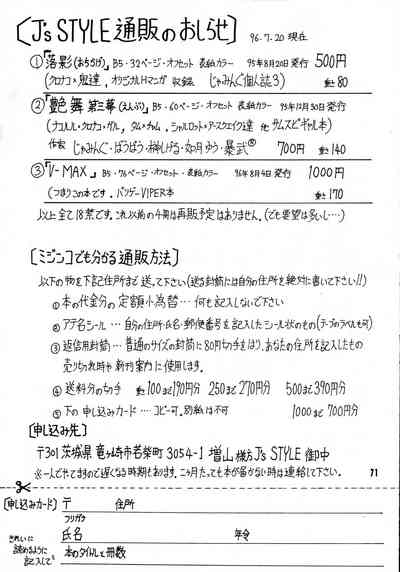 [J's STYLE 通販のおしらせ] 96.7.20 現在
①「落影(おちかげ)」B5・32ページ・オフセット 表紙カラー 95年8月20日発行 500円
(クロナコ×鬼達, オリジナルHマンガ 収録 じゃみんぐ個人誌3) 重さ80
②「艶舞 第三幕(えんぶ)」B5・60ページ・オフセット 表紙カラー 95年12月30日発行
(ナコルル・クロナコ・ガル, タム×ナム, シャルロット・アースクエイク達 他 サムスピギャル本)
作家 じゃみんぐ・ばうばう・榊しげる・如月ゆう・暴武® 700円 重さ140
③「V-MAX」 B5・76ページ・オフセット・表紙カラー 96年8月4日発行 1000円
(つまりこの本です。バンゲーVIPER本 重さ170
以上全て18禁です。これ以前の本等は再販予定はありません。(でも要望は多いし…)
[ミジンコでも分かる通販方法]
以下の物を下記住所まで送って下さい(送る封筒には自分の住所を絶対に書いて下さい!!)
①本の代金分の定額小為替…何も記入しないで下さい
②アテ名シール…自分の住所・氏名・郵便番号を記入したシール状のもの(テープのラベルも可)
③返信用封筒…普通のサイズの封筒に80円切手をはり、あなたの住所を記入したもの
売り切れ時や新刊案内に使用します。
④送料分の切手 重さ100まで190円分 250まで270円分 500まで390円分
⑤下の申し込みカード…コピー可。別紙は不可 1000まで700円分
[申し込み先]
〒301 茨城県竜ヶ崎市若柴町3054-1 増山様方J's STYLE 御中
※一人でやってますので遅くなる時期もあります。二ヶ月たっても本が届かない時は連絡して下さい。 71
[申し込みカード] 〒 住所
フリガナ
氏名 年令
きれいに
読めるように
記入して
本のタイトルと冊数